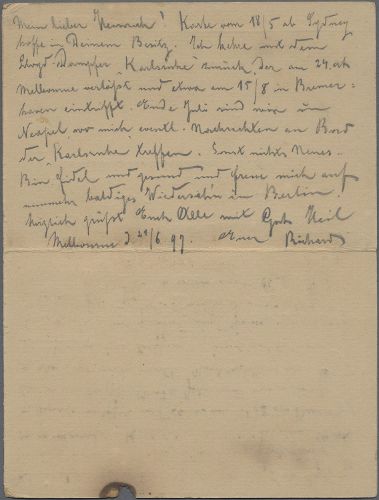 Mein lieber Heinrich! Karte vom 18/5 ab Sydney
hoffe in Deinem Besitz. Ich kehre mit dem
Lloyd-Dampfer „Karlsruhe“ zurück, der am 24. ab
Melbourne verläßt und etwa am 15/8 in Bremer-
haven eintrifft. Ende Juli sind wir in
Neapel, wo mich eventl. Nachrichten an Bord
der „Karlsruhe“ treffen. Sonst nichts Neues.
Bin fidel und gesund und freue mich auf
nunmehr baldiges Wiedersehn in Berlin.
Herzlich grüßt Euch Alle mit Gut Heil
Melbourne d. 21/6 97. Euer Richard